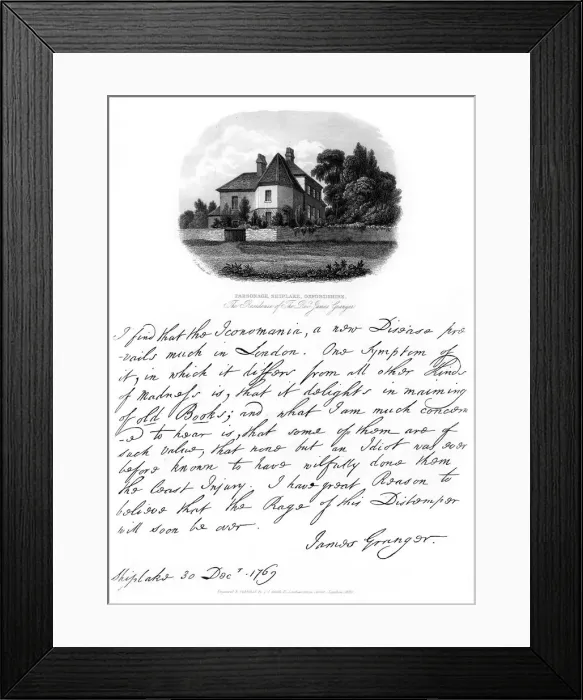 PARSONAGE, SHIPLAKE, OXFORDSHIRE.
The Residence of The Revd. James Granger
I find that the Iconomania, a new Disease pre
-vails much in London. One Symptom of
it, in which it differs from all other Kinds
of Madness is, that it delights in maiming
of old Books; and, what I am much concern
-ed to hear is, that some of them are of
such value, that none but an Idiot was ever
before known to have wilfully done them
the least Injury. I have great Reason to
believe that the Rage of this Distemper
will soon be over.
James Granger.
Shiplake 30 Decr. 1769